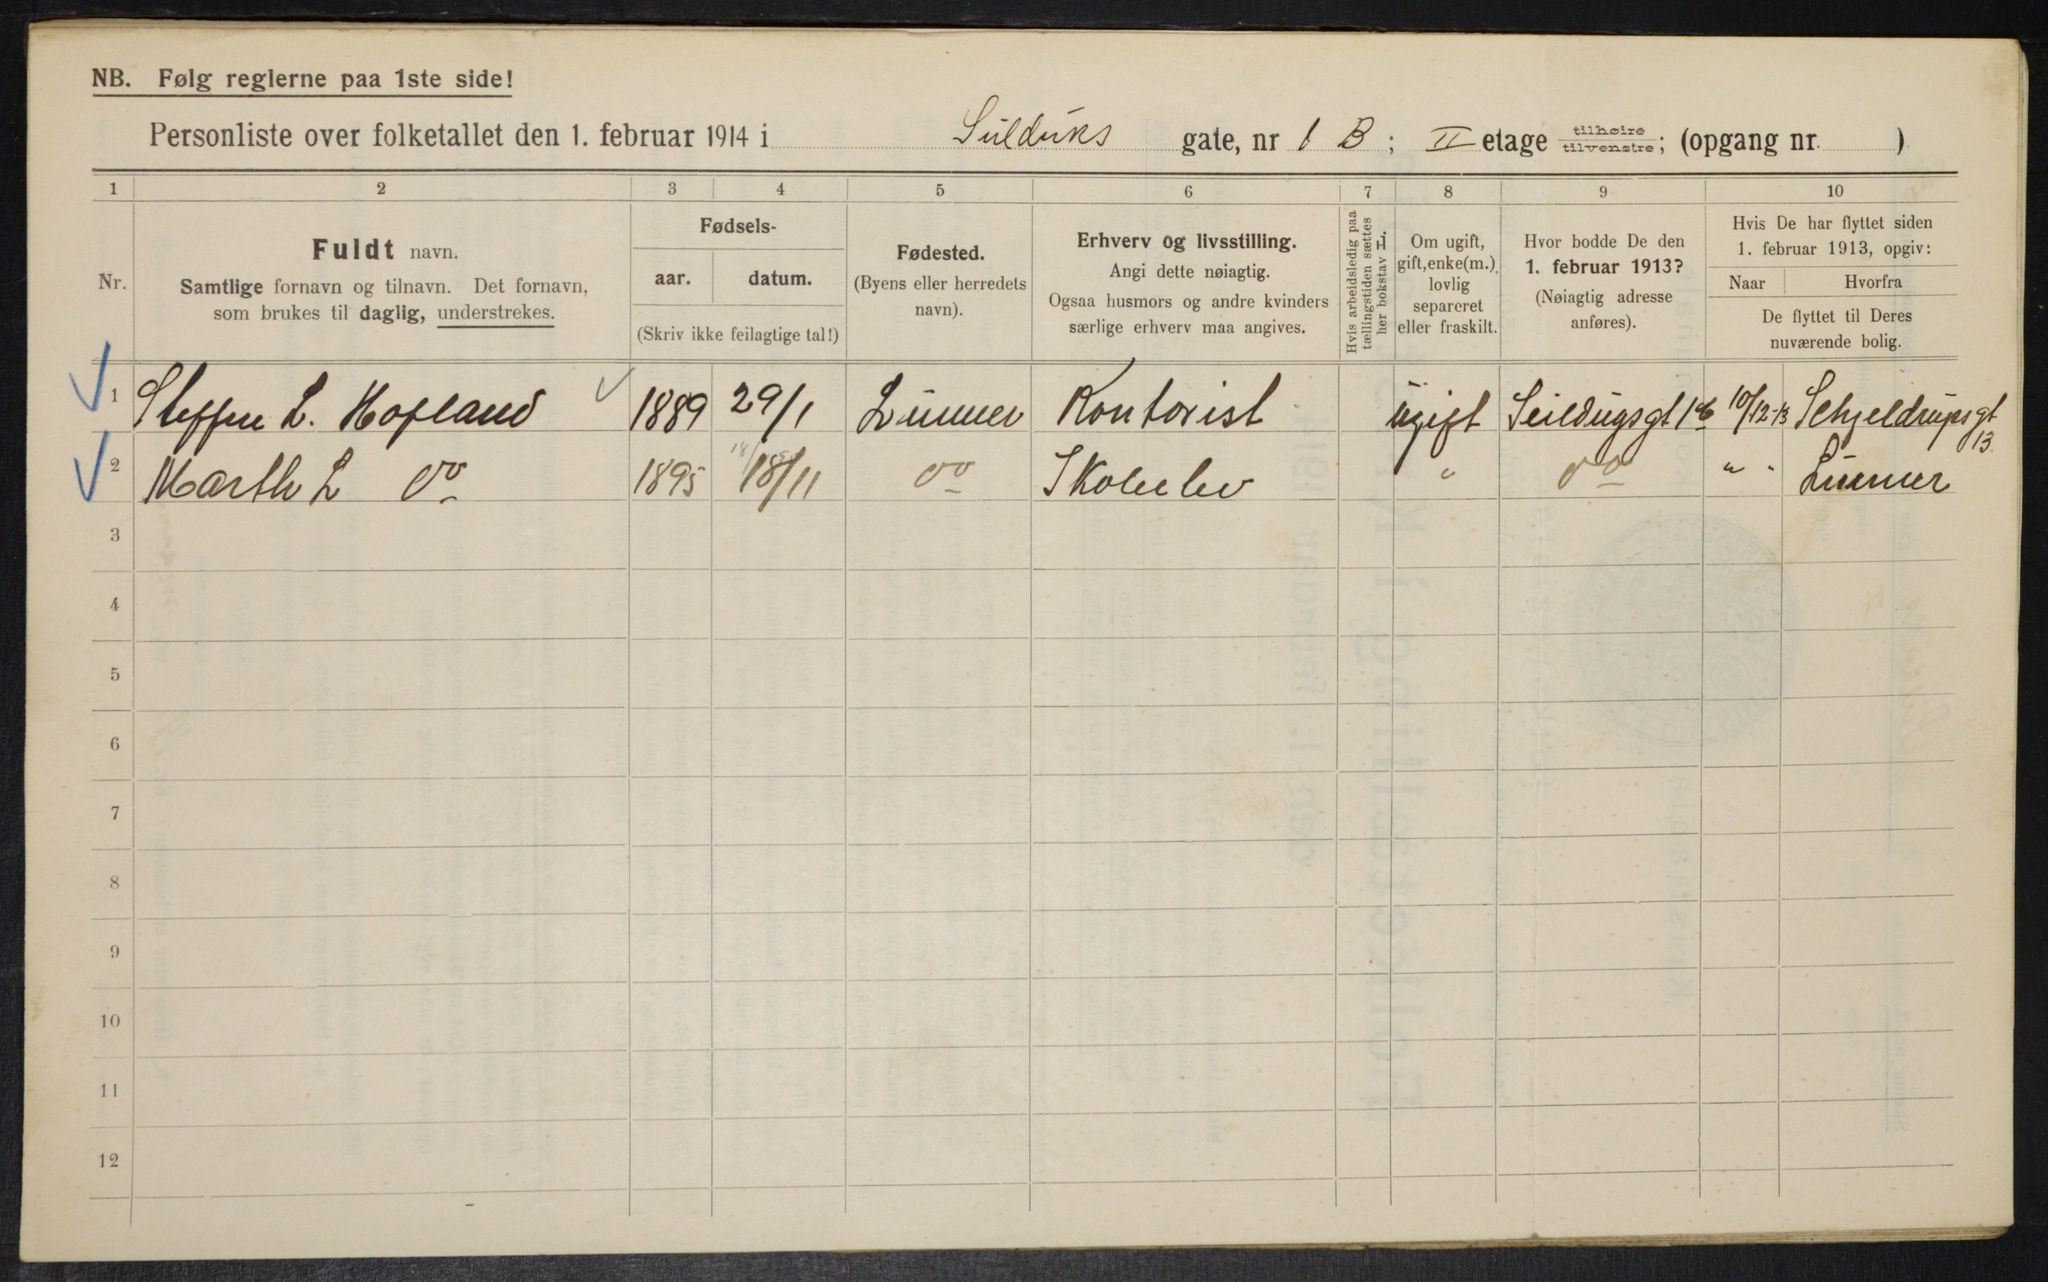 NB. Følg reglerne paa 1ste side!
Personliste over folketallet den 1. februar 1914 i Seilduks gate, nr 1 B; II etage tilhøire tilvenstre; (opgang nr. )
1 2 3 4 5 6 7 8 9 10
Nr.
Fuldt navn.
Samtlige fornavn og tilnavn. Det fornavn,
som brukes til daglig, understrekes.
Fødsels-
aar. datum.
(Skriv ikke feilagtige tal!)
Fødested.
(Byens eller herredets
navn).
Erhverv og livsstilling.
Angi dette nøiagtig.
Ogsaa husmors og andre kvinders
særlige erhverv maa angives.
Hvis arbeidsledig paa
tællingstiden sættes
her bokstav L.
Om ugift,
gift, enke(m.),
lovlig
separeret
eller fraskilt.
Hvor bodde De den
1. februar 1913?
(Nøiagtig adresse
anføres).
Hvis De har flyttet siden
1. februar 1913, opgiv:
Naar Hvorfra
De flyttet til Deres
nuværende bolig.
1 Steffen L. Hofland 1889 29/1 Lunner Kontorist ugift Seildugsgt 10/12-13 Schjeldrups gt 13
2 Marth L do 1895 18/11 do Skoleelev " do " " Lunner
3
4
5
6
7
8
9
10
11
12